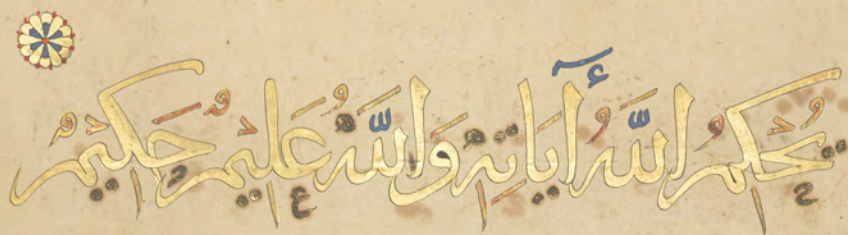 يُحْكِمُ اللَّهُ آيَاتِهِ وَاللَّهُ عَلِيمٌ حَكِيمٌ